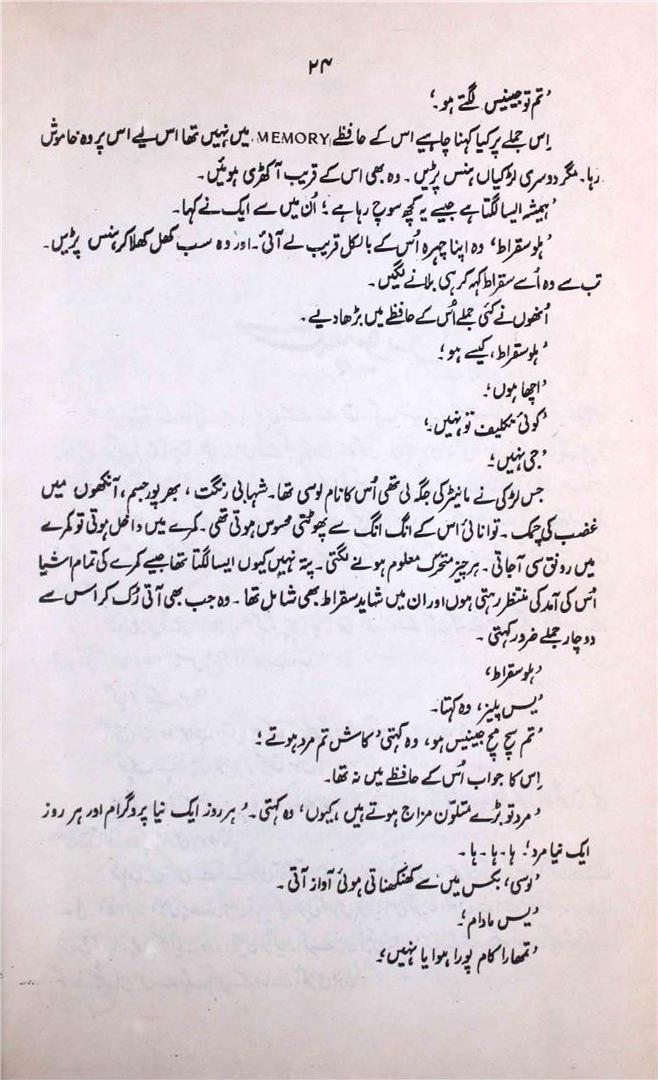 ۲۴
’تم تو جینیس لگتے ہو۔‘
اِس جملے پر کیا کہنا چاہیے اس کے حافظے (MEMORY) میں نہیں تھا اس لیے اس پر وہ خاموش
رہا۔ مگر دوسری لڑکیاں ہنس پڑیں۔ وہ بھی اس کے قریب آ کھڑی ہوئیں۔
’ہمیشہ ایسا لگتا ہے جیسے یہ کچھ سوچ رہا ہے؛ اُن میں سے ایک نے کہا۔
’ہلو سقراط، وہ اپنا چہرہ اُس کے بالکل قریب لے آئی۔ اور وہ سب کھل کھلا کر ہنس پڑیں۔
تب سے وہ اُسے سقراط کہہ کر ہی بلانے لگیں۔
اُنھوں نے کئی جملے اُس کے حافظے میں بڑھا دیے۔
’ہلو سقراط، کیسے ہو؛
’اچھا ہوں؛
’کوئی تکلیف تو نہیں؛
’جی نہیں۔
جس لڑکی نے مانیٹر کی جگہ لی تھی اُس کا نام لوسی تھا۔ شہابی رنگت، بھرپور جسم، آنکھوں میں
غضب کی چمک۔ توانائی اس کے انگ انگ سے پھوٹتی محسوس ہوتی تھی۔ کمرے میں داخل ہوتی تو کمرے
میں رونق سی آ جاتی۔ ہر چیز متحرک معلوم ہونے لگتی۔ پتہ نہیں کیوں ایسا لگتا تھا جیسے کمرے کی تمام اشیا
اُس کی آمد کی منتظر رہتی ہوں اور ان میں شاید سقراط بھی شامل تھا۔ وہ جب بھی آتی رُک کر اس سے
دو چار جملے ضرور کہتی۔
’ہلو سقراط،
’یس پلیز، وہ کہتا۔
’تم سچ مچ جینیس ہو، وہ کہتی ’کاش تم مرد ہوتے؛
اِس کا جواب اُس کے حافظے میں نہ تھا۔
’مرد تو بڑے متلوّن مزاج ہوتے ہیں، کیوں، وہ کہتی۔ ’ہر روز ایک نیا پروگرام اور ہر روز
ایک نیا مرد؛ ہا۔ ہا۔ ہا۔
’لوسی، بکس میں سے کھنکھناتی ہوئی آواز آتی۔
’یس مادام؛
’تمھارا کام پورا ہوا یا نہیں؛